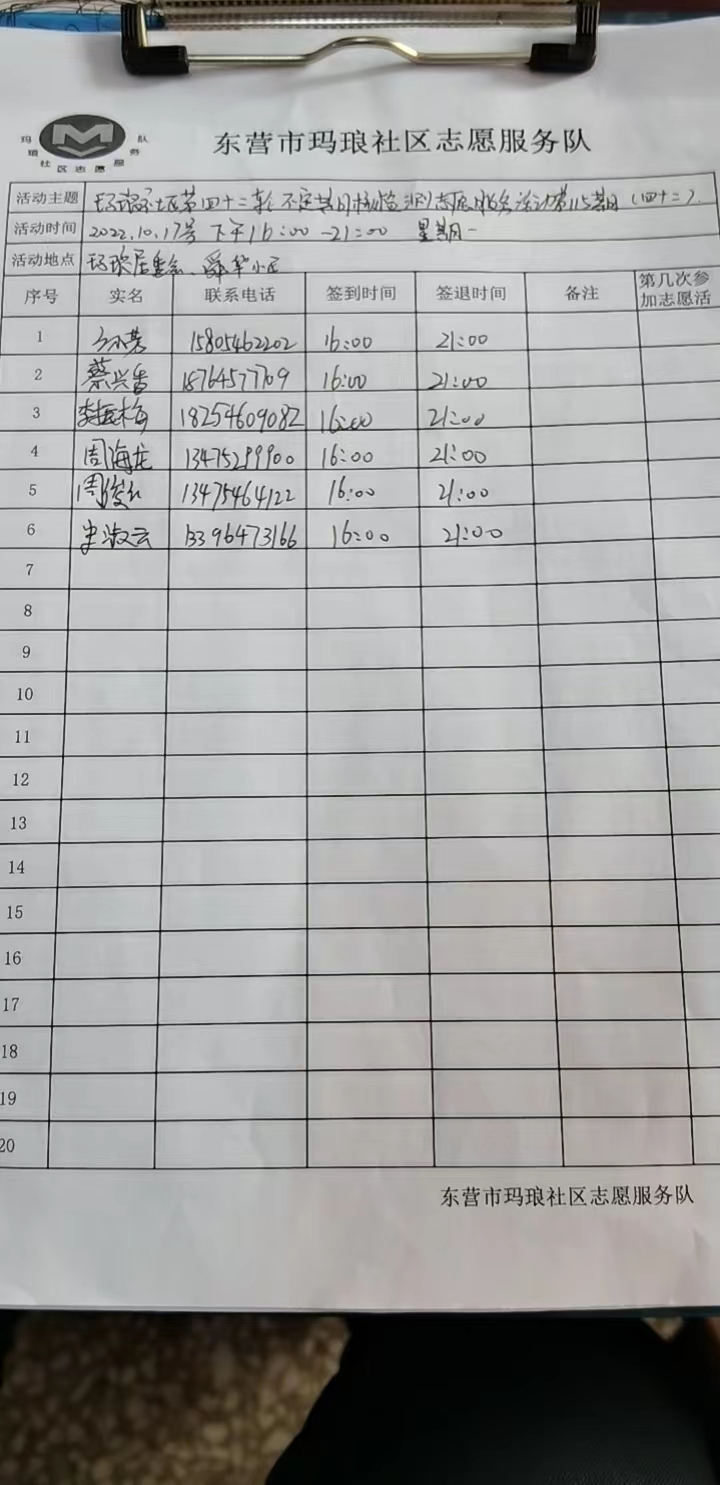 玛琅社区志愿服务队
东营市玛琅社区志愿服务队
活动主题 玛琅社区第四十二轮不定期核酸检测志愿服务活动第115期（四十二）
活动时间 2022.10.17号 下午16:00-21:00 星期一
活动地点 玛琅居委会、舜华小区
序号 实名 联系电话 签到时间 签退时间 备注 第几次参加志愿活
1 15805462202 16:00 21:00
2 蔡兴香 18764577709 16:00 21:00
3 李振梅 18254609082 16:00 21:00
4 周海龙 13475299900 16:00 21:00
5 周俊红 13475464122 16:00 21:00
6 史淑云 13396473166 16:00 21:00
7
8
9
10
11
12
13
14
15
16
17
18
19
20
东营市玛琅社区志愿服务队